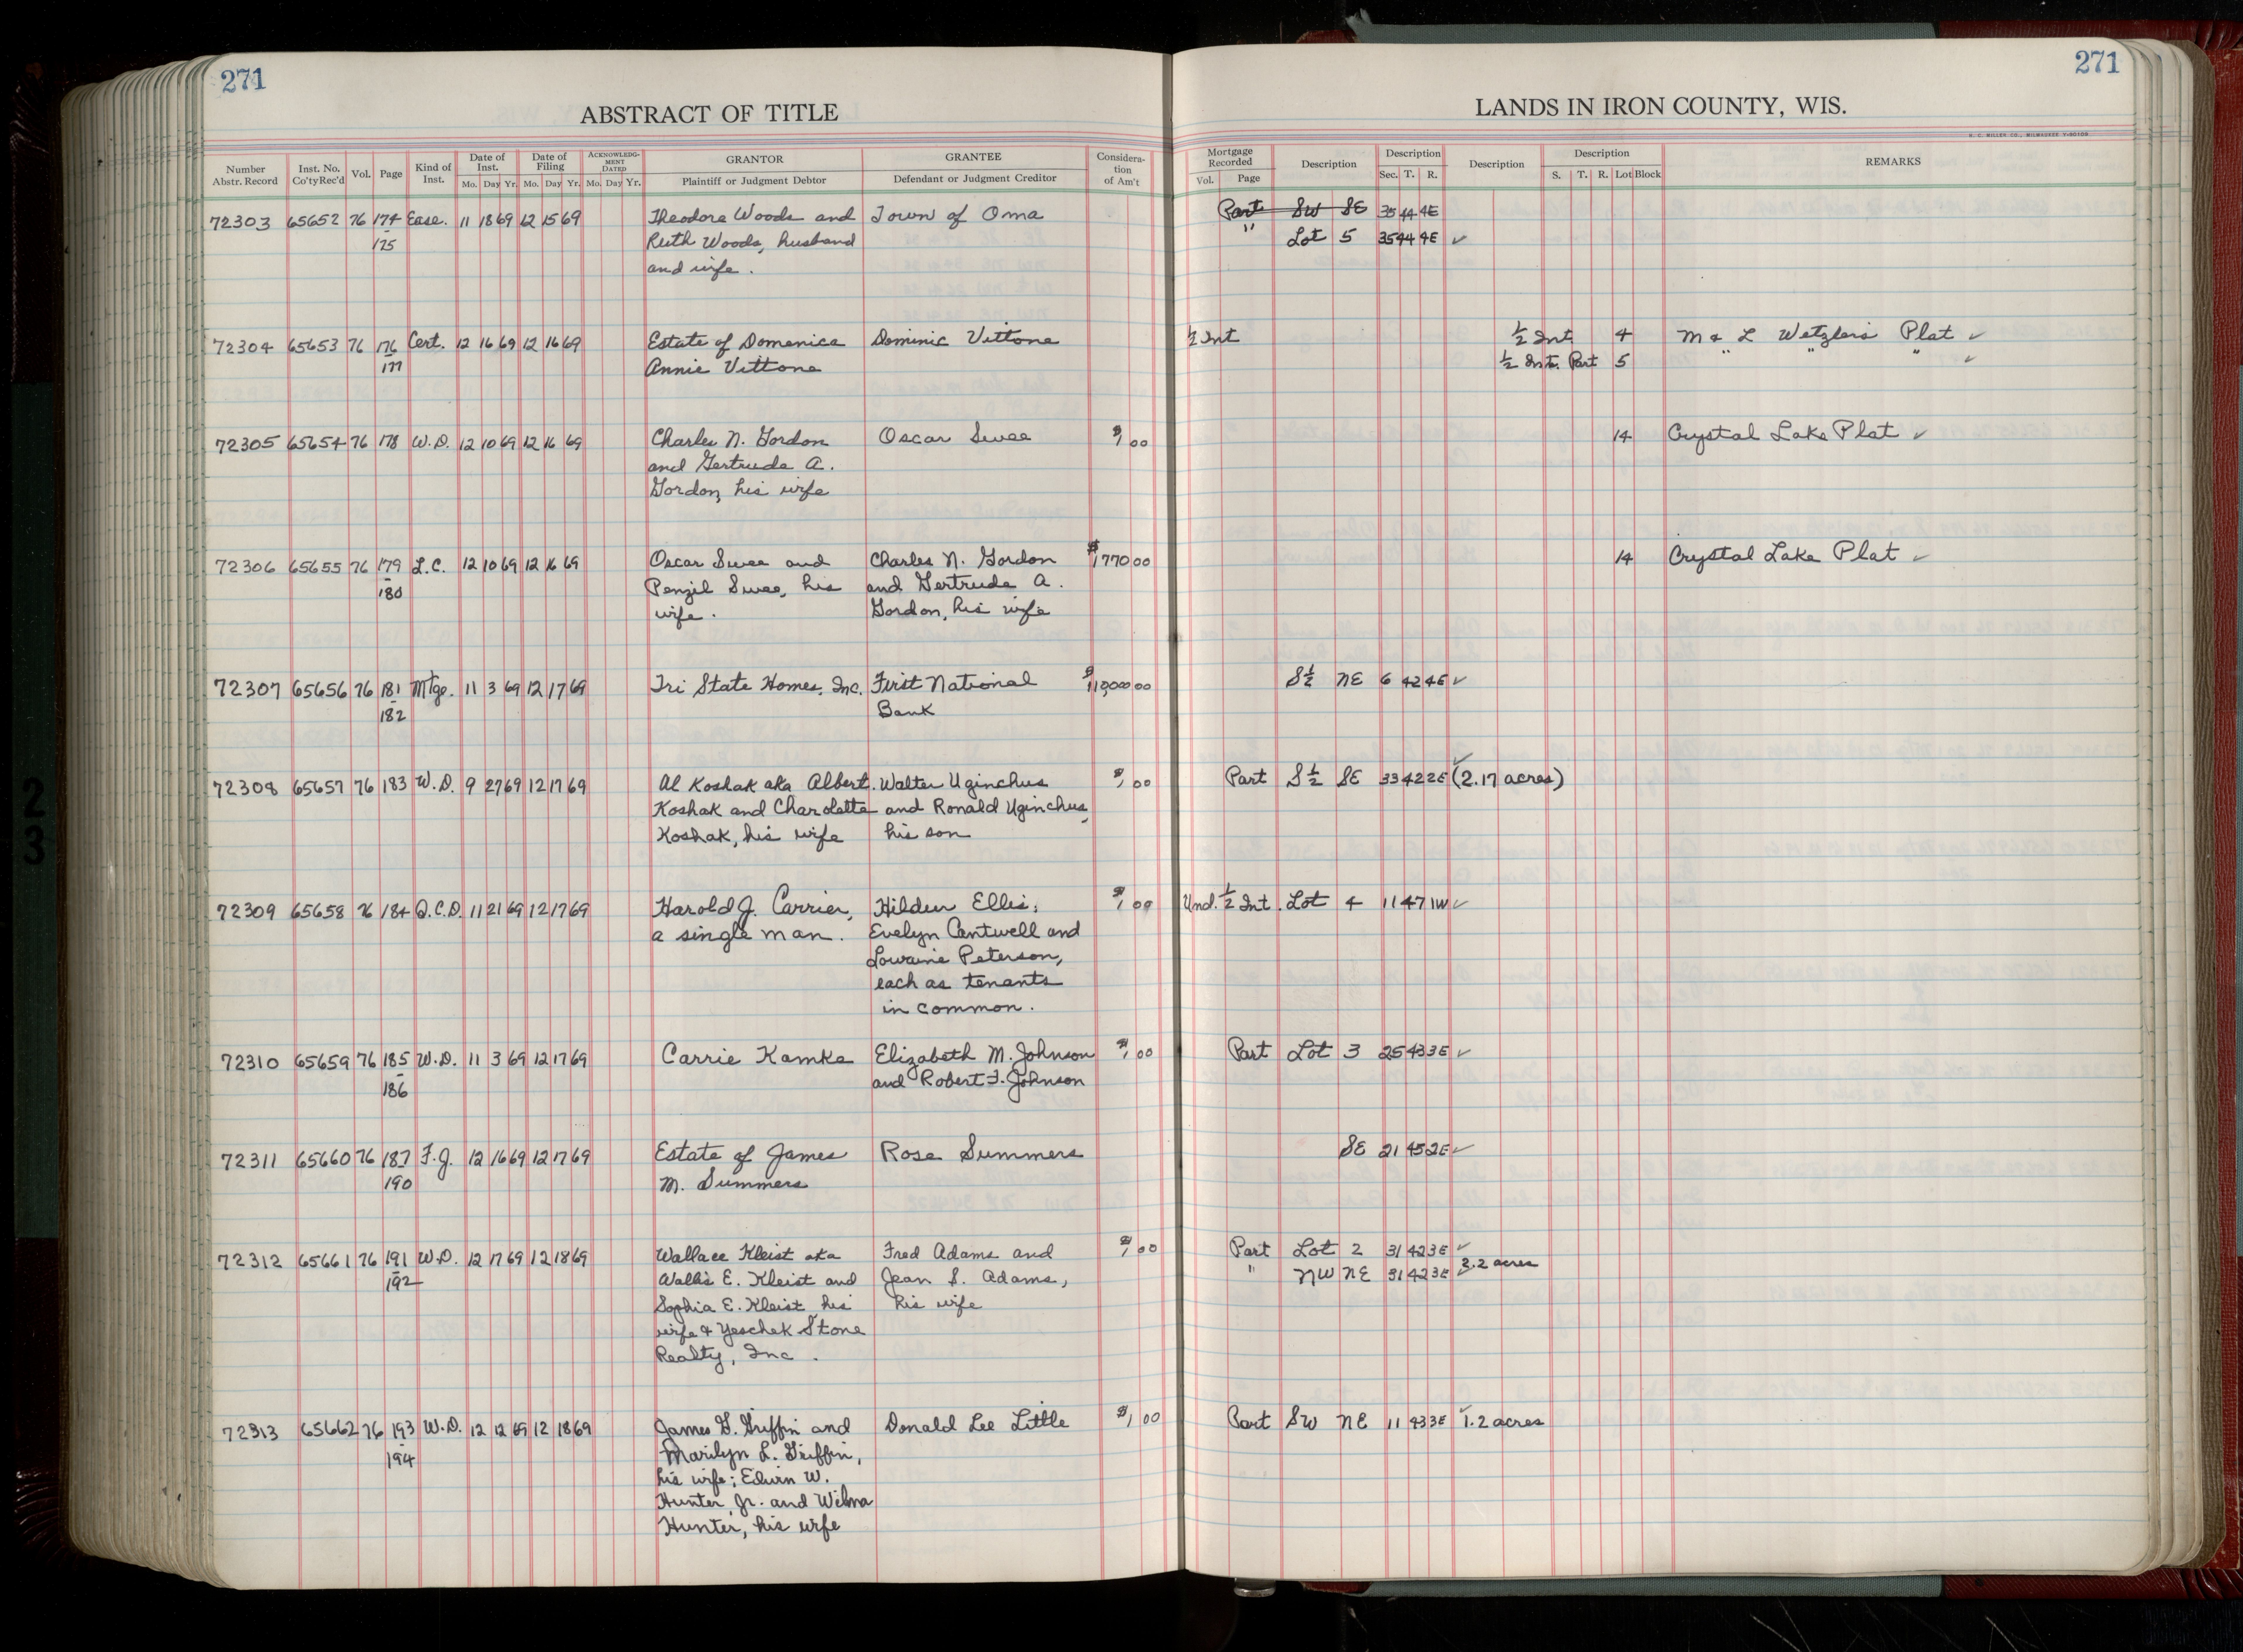 271
271
ABSTRACT OF TITLE
LANDS IN IRON COUNTY, WIS.
H. C. MILLER CO., MILWAUKEE
Number Abstr. Record | Inst. No. Co'ty Rec'd | Vol. | Page | Kind of Inst. | Date of Inst. Mo. Day Yr. | Date of Filing Mo. Day Yr. | ACKNOWLEDGMENT DATED Mo. Day Yr. | GRANTOR Plaintiff or Judgment Debtor | GRANTEE Defendant or Judgment Creditor | Consideration of Am't | Mortgage Recorded Vol. Page | Description | Description Sec. T. R. | Description | Description S. T. R. Lot Block | REMARKS
72303 65652 76 174 Ease. 11 18 69 12 15 69 Theodore Woods and Town of Oma Part SW SE 35 44 4E
125 Ruth Woods, husband " Lot 5 35 44 4E ✓
and wife.
72304 65653 76 176 Cert. 12 16 69 12 16 69 Estate of Domenica Dominic Vittone ½ Int ½ Int 4 M & L Wetzler's Plat ✓
177 Annie Vittone ½ Int. Part 5 " " " ✓
72305 65654 76 178 W.D. 12 10 69 12 16 69 Charles N. Gordon Oscar Swee $1 00 14 Crystal Lake Plat ✓
and Gertrude A.
Gordon, his wife
72306 65655 76 179 L.C. 12 10 69 12 16 69 Oscar Swee and Charles N. Gordon $1,770 00 14 Crystal Lake Plat ✓
180 Penzil Swee, his and Gertrude A.
wife. Gordon, his wife
72307 65656 76 181 Mtge. 11 3 69 12 17 69 Tri State Homes, Inc. First National 00 S½ NE 6 42 4E ✓
182 Bank
72308 65657 76 183 W.D. 9 27 69 12 17 69 Al Koshak aka Albert Walter Uginchus $1 00 Part S½ SE 33 42 2E ✓ (2.17 acres)
Koshak and Charolette and Ronald Uginchus,
Koshak, his wife his son
72309 65658 76 184 Q.C.D. 11 21 69 12 17 69 Harold J. Carrier, Hildur Ellis, $1 00 Und. ½ Int. Lot 4 11 47 1W ✓
a single man. Evelyn Cantwell and
Lowraine Peterson,
each as tenants
in common.
72310 65659 76 185 W.D. 11 3 69 12 17 69 Carrie Kamke Elizabeth M. Johnson $1 00 Part Lot 3 25 43 3E ✓
186 and Robert F. Johnson
72311 65660 76 187 F.J. 12 16 69 12 17 69 Estate of James Rose Summers SE 21 45 2E ✓
190 M. Summers
72312 65661 76 191 W.D. 12 17 69 12 18 69 Wallace Kleist aka Fred Adams and $1 00 Part Lot 2 31 42 3E ✓
192 Wallis E. Kleist and Jean S. Adams, " NW NE 31 42 3E ✓ 3.2 acres
Sophia E. Kleist his his wife
wife & Yeschek Stone
Realty, Inc.
72313 65662 76 193 W.D. 12 12 69 12 18 69 James G. Griffin and Donald Lee Little $1 00 Part SW NE 11 43 3E ✓ 1.2 acres
194 Marilyn L. Griffin,
his wife; Edwin W.
Hunter, Jr. and Wilma
Hunter, his wife
23